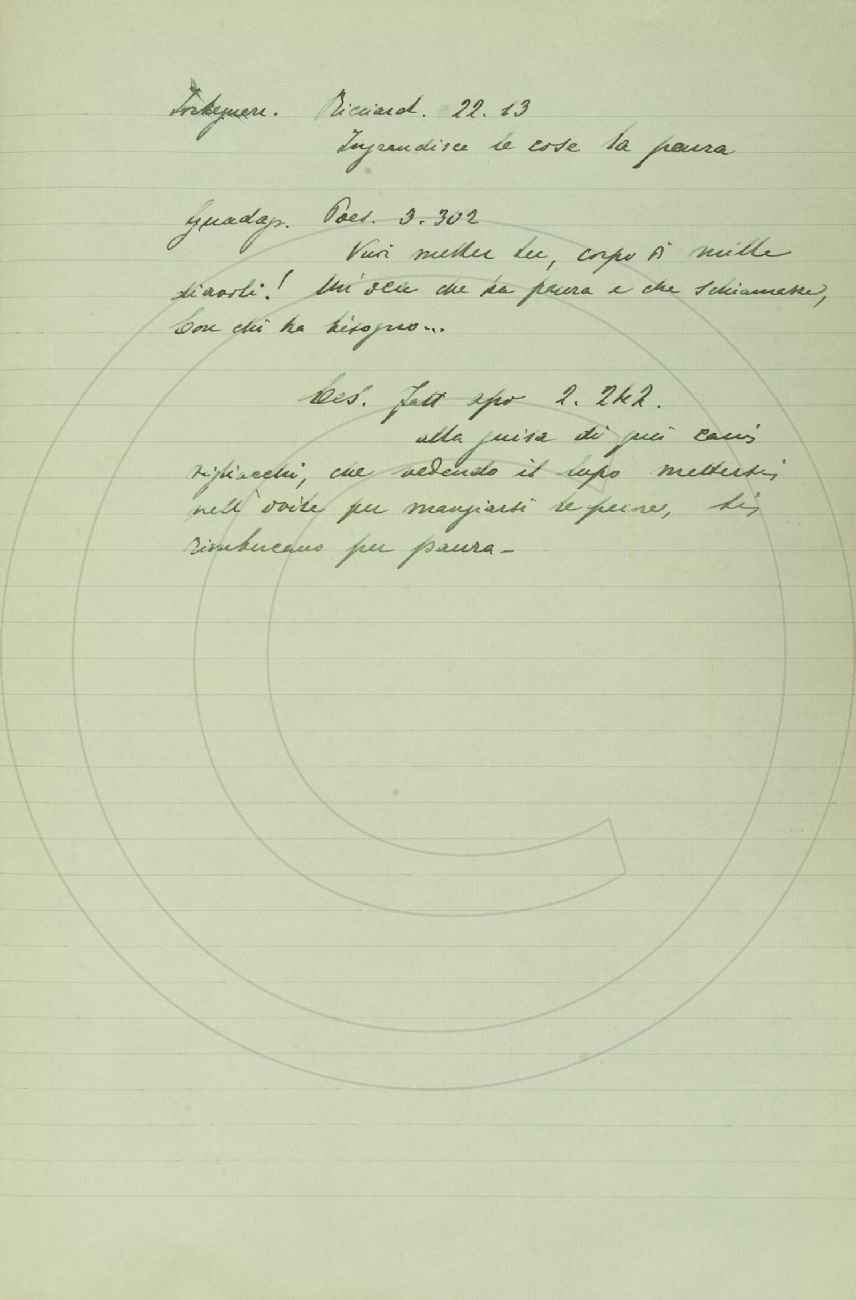 Forteguerr. Ricciard. 22. 13
Ingrandisce le cose la paura
Guadagn. Poes. 2. 302
Vuoi metter tu, corpo di mille
diavoli! Un' oca che ha paura e che
Con chi ha bisogno...
Ces. Fatt apo 2. 242.
alla guisa di quei cani
vigliacchi, che vedendo il lupo mettersi
nell' ovile per mangiarsi le pecore, si
rimbucano per paura -